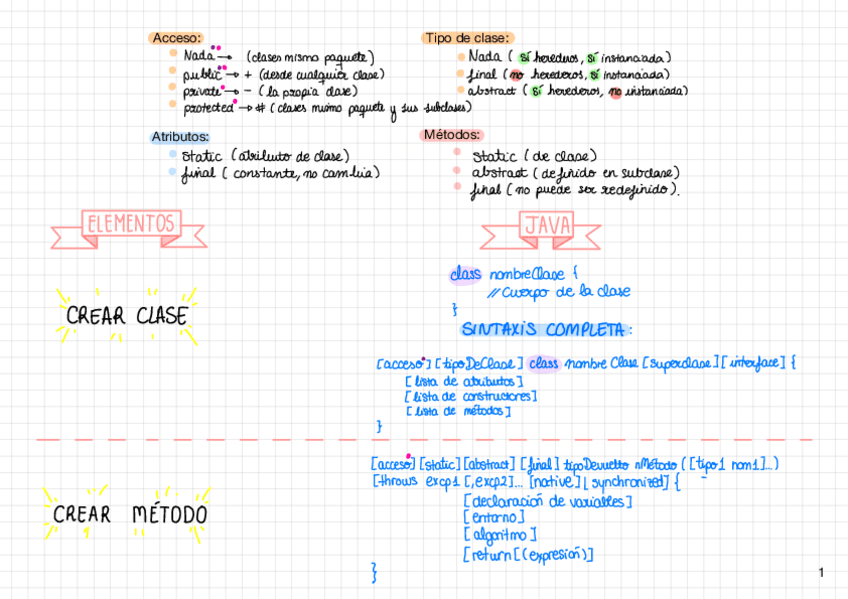 Acceso:
Nada → (clases mismo paquete)
public → + (desde cualquier clase)
private → - (la propia clase)
protected → # (clases mismo paquete y sus subclases)
Tipo de clase:
Nada (sí herederos, sí instanciada)
final (no herederos, sí instanciada)
abstract (sí herederos, no instanciada)
Atributos:
static (atributo de clase)
final (constante, no cambia)
Métodos:
static (de clase)
abstract (definido en subclase)
final (no puede ser redefinido).
ELEMENTOS
JAVA
CREAR CLASE
class nombreClase {
//Cuerpo de la clase
}
SINTAXIS COMPLETA:
[acceso] [tipoDeClase] class nombreClase [superclase] [interface] {
[lista de atributos]
[lista de constructores]
[lista de métodos]
}
CREAR MÉTODO
[acceso] [static] [abstract] [final] tipoDevuelto nMétodo ([tipo1 nom1]...)
[throws excp1 [,excp2]... [native] [synchronized] {
[declaración de variables]
[entorno]
[algoritmo]
[return[(expresión)]
}
1